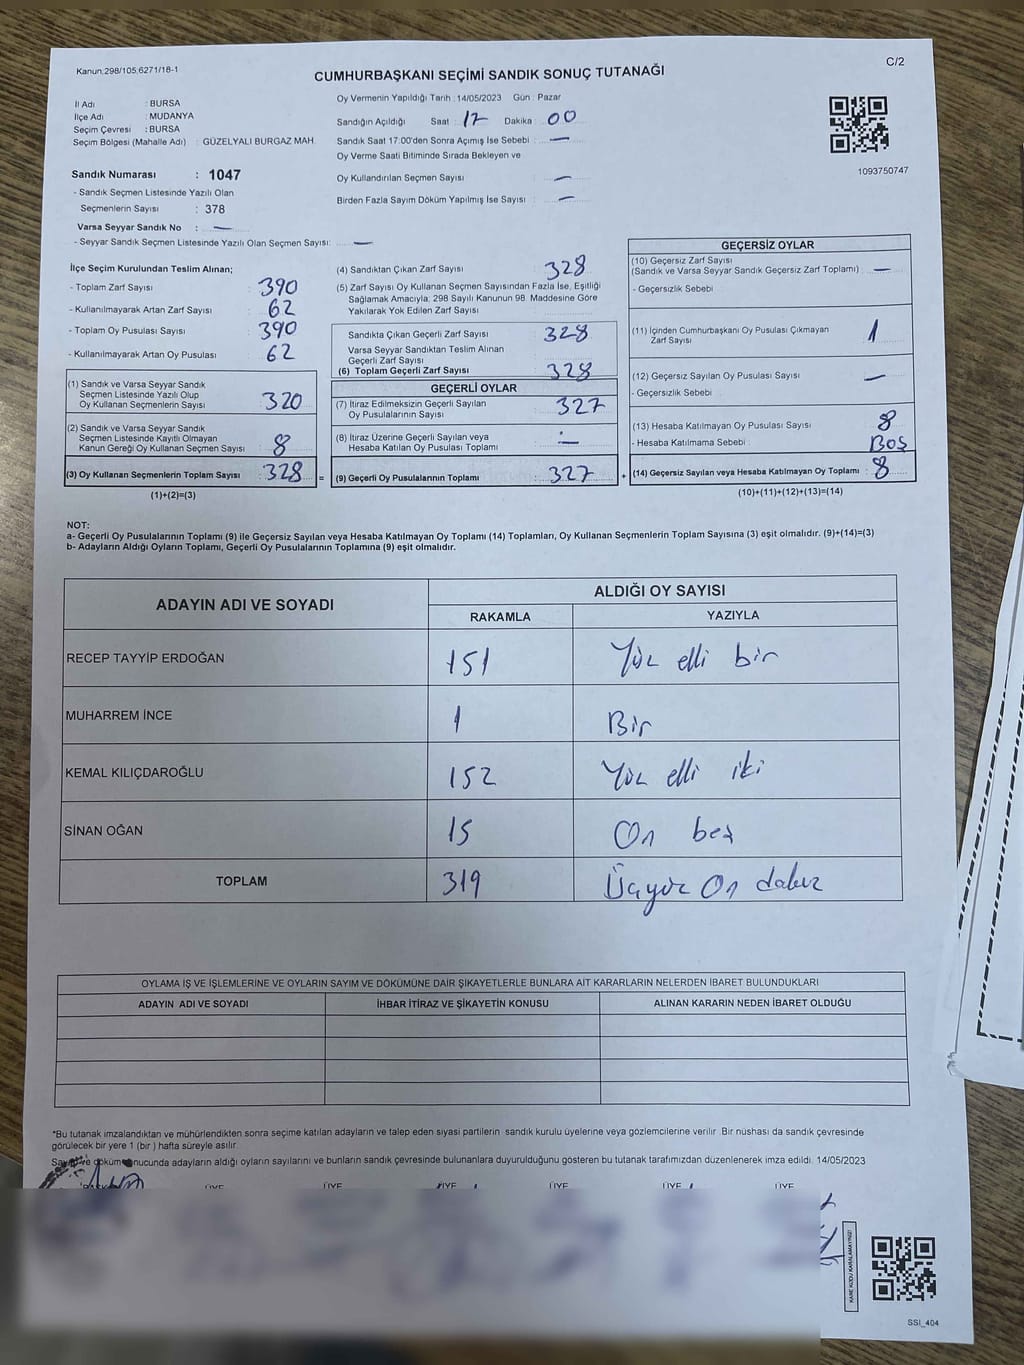 Kanun:298/105;6271/18-1
C/2
CUMHURBAŞKANI SEÇİMİ SANDIK SONUÇ TUTANAĞI
İl Adı : BURSA
İlçe Adı : MUDANYA
Seçim Çevresi : BURSA
Seçim Bölgesi (Mahalle Adı) : GÜZELYALI BURGAZ MAH.
Sandık Numarası : 1047
- Sandık Seçmen Listesinde Yazılı Olan
Seçmenlerin Sayısı : 378
Varsa Seyyar Sandık No : —
- Seyyar Sandık Seçmen Listesinde Yazılı Olan Seçmen Sayısı: —
Oy Vermenin Yapıldığı Tarih : 14/05/2023 Gün : Pazar
Sandığın Açıldığı Saat : 17 Dakika : 00
Sandık Saat 17:00'den Sonra Açımış İse Sebebi : —
Oy Verme Saati Bitiminde Sırada Bekleyen ve
Oy Kullandırılan Seçmen Sayısı : —
Birden Fazla Sayım Döküm Yapılmış İse Sayısı : —
1093750747
İlçe Seçim Kurulundan Teslim Alınan;
- Toplam Zarf Sayısı : 390
- Kullanılmayarak Artan Zarf Sayısı : 62
- Toplam Oy Pusulası Sayısı : 390
- Kullanılmayarak Artan Oy Pusulası : 62
(1) Sandık ve Varsa Seyyar Sandık
Seçmen Listesinde Yazılı Olup
Oy Kullanan Seçmenlerin Sayısı : 320
(2) Sandık ve Varsa Seyyar Sandık
Seçmen Listesinde Kayıtlı Olmayan
Kanun Gereği Oy Kullanan Seçmen Sayısı : 8
(3) Oy Kullanan Seçmenlerin Toplam Sayısı : 328
(1)+(2)=(3)
(4) Sandıktan Çıkan Zarf Sayısı : 328
(5) Zarf Sayısı Oy Kullanan Seçmen Sayısından Fazla İse, Eşitliği
Sağlamak Amacıyla; 298 Sayılı Kanunun 98. Maddesine Göre
Yakılarak Yok Edilen Zarf Sayısı :
Sandıkta Çıkan Geçerli Zarf Sayısı : 328
Varsa Seyyar Sandıktan Teslim Alınan
Geçerli Zarf Sayısı
(6) Toplam Geçerli Zarf Sayısı : 328
=
GEÇERLİ OYLAR
(7) İtiraz Edilmeksizin Geçerli Sayılan
Oy Pusulalarının Sayısı : 327
(8) İtiraz Üzerine Geçerli Sayılan veya
Hesaba Katılan Oy Pusulası Toplamı : —
(9) Geçerli Oy Pusulalarının Toplamı : 327
+
GEÇERSİZ OYLAR
(10) Geçersiz Zarf Sayısı
(Sandık ve Varsa Seyyar Sandık Geçersiz Zarf Toplamı) : —
- Geçersizlik Sebebi :
(11) İçinden Cumhurbaşkanı Oy Pusulası Çıkmayan
Zarf Sayısı : 1
(12) Geçersiz Sayılan Oy Pusulası Sayısı : —
- Geçersizlik Sebebi
(13) Hesaba Katılmayan Oy Pusulası Sayısı : 8
- Hesaba Katılmama Sebebi : BOŞ
(14) Geçersiz Sayılan veya Hesaba Katılmayan Oy Toplamı : 8
(10)+(11)+(12)+(13)=(14)
NOT:
a- Geçerli Oy Pusulalarının Toplamı (9) ile Geçersiz Sayılan veya Hesaba Katılmayan Oy Toplamı (14) Toplamları, Oy Kullanan Seçmenlerin Toplam Sayısına (3) eşit olmalıdır. (9)+(14)=(3)
b- Adayların Aldığı Oyların Toplamı, Geçerli Oy Pusulalarının Toplamına (9) eşit olmalıdır.
ADAYIN ADI VE SOYADI
ALDIĞI OY SAYISI
RAKAMLA YAZIYLA
RECEP TAYYİP ERDOĞAN 151 Yüz elli bir
MUHARREM İNCE 1 Bir
KEMAL KILIÇDAROĞLU 152 Yüz elli iki
SİNAN OĞAN 15 On beş
TOPLAM 319 Üçyüz On dokuz
OYLAMA İŞ VE İŞLEMLERİNE VE OYLARIN SAYIM VE DÖKÜMÜNE DAİR ŞİKAYETLERLE BUNLARA AİT KARARLARIN NELERDEN İBARET BULUNDUKLARI
ADAYIN ADI VE SOYADI İHBAR İTİRAZ VE ŞİKAYETİN KONUSU ALINAN KARARIN NEDEN İBARET OLDUĞU
*Bu tutanak imzalandıktan ve mühürlendikten sonra seçime katılan adayların ve talep eden siyasi partilerin sandık kurulu üyelerine veya gözlemcilerine verilir. Bir nüshası da sandık çevresinde
görülecek bir yere 1 (bir ) hafta süreyle asılır.
ve döküm sonucunda adayların aldığı oyların sayılarını ve bunların sandık çevresinde bulunanlara duyurulduğunu gösteren bu tutanak tarafımızdan düzenlenerek imza edildi. 14/05/2023
ÜYE ÜYE ÜYE ÜYE ÜYE ÜYE
KARE KODU KARALAMAYINIZ!
SSI_404